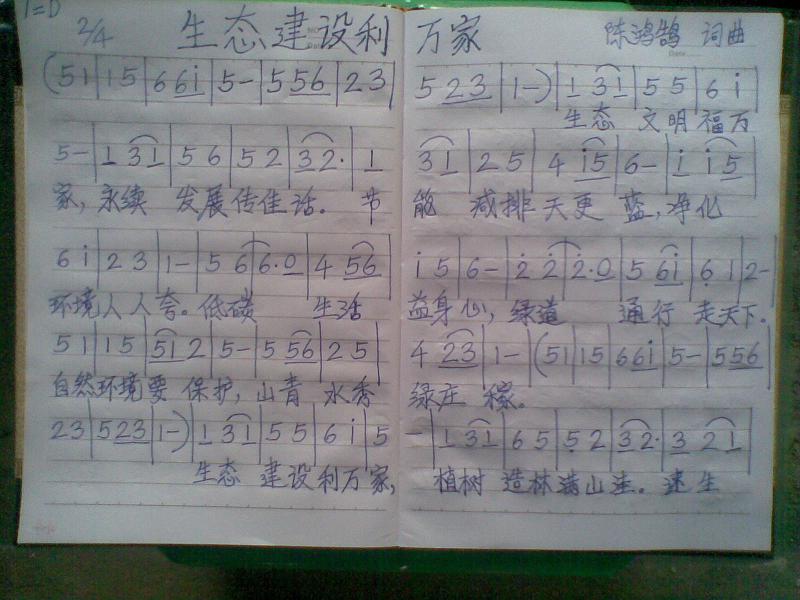 1=D
2/4 生态建设利万家 陈鸿鹄 词曲
(51|15|66i|5-|556|23|523|1-)|1 31|55|6i|
生态 文明福万
5-|1 31|56|52|32·|1 31|25|4 i5|6-|i i5|
家,永续 发展传佳话。节能 减排天更 蓝,净化
6i|23|1-|56|6·0|4 56|i5|6-|22|2·0|5 6i|61|2-
环境人人夸。低碳 生活益身心,绿道 通行 走天下。
51|15|512|5-|556|25|4 23|1-|(51|15|66i|5-|556|
自然环境要 保护,山青 水秀绿庄 稼。
23|523|1-)|1 31|55|6i|5-|1 31|65|52|32·|3 21|
生态 建设利万家, 植树 造林满山洼。速生